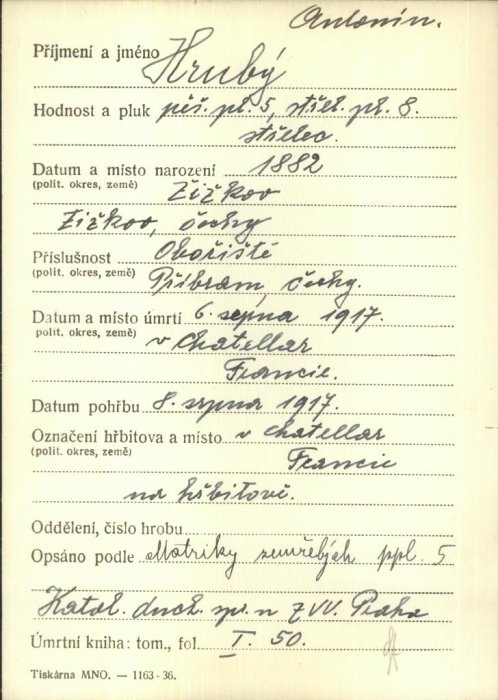 Antonín.
Příjmení a jméno Hrubý
Hodnost a pluk pěš. pl. 5, střel. pl. 8.
střelec.
Datum a místo narození 1882
(polit. okres, země) Žižkov
Žižkov, čechy
Příslušnost Obořiště
(polit. okres, země) Příbram, čechy.
Datum a místo úmrtí 6. srpna 1917.
polit. okres, země) v Chatellar
Francie.
Datum pohřbu 8. srpna 1917.
Označení hřbitova a místo v Chatellar
(polit. okres, země) Francie
na hřbitově.
Oddělení, číslo hrobu
Opsáno podle Matriky zemřelých ppl. 5
Katol. duch. spr. u ZVV. Praha
Úmrtní kniha: tom., fol. I. 50.
Tiskárna MNO. — 1163-36.